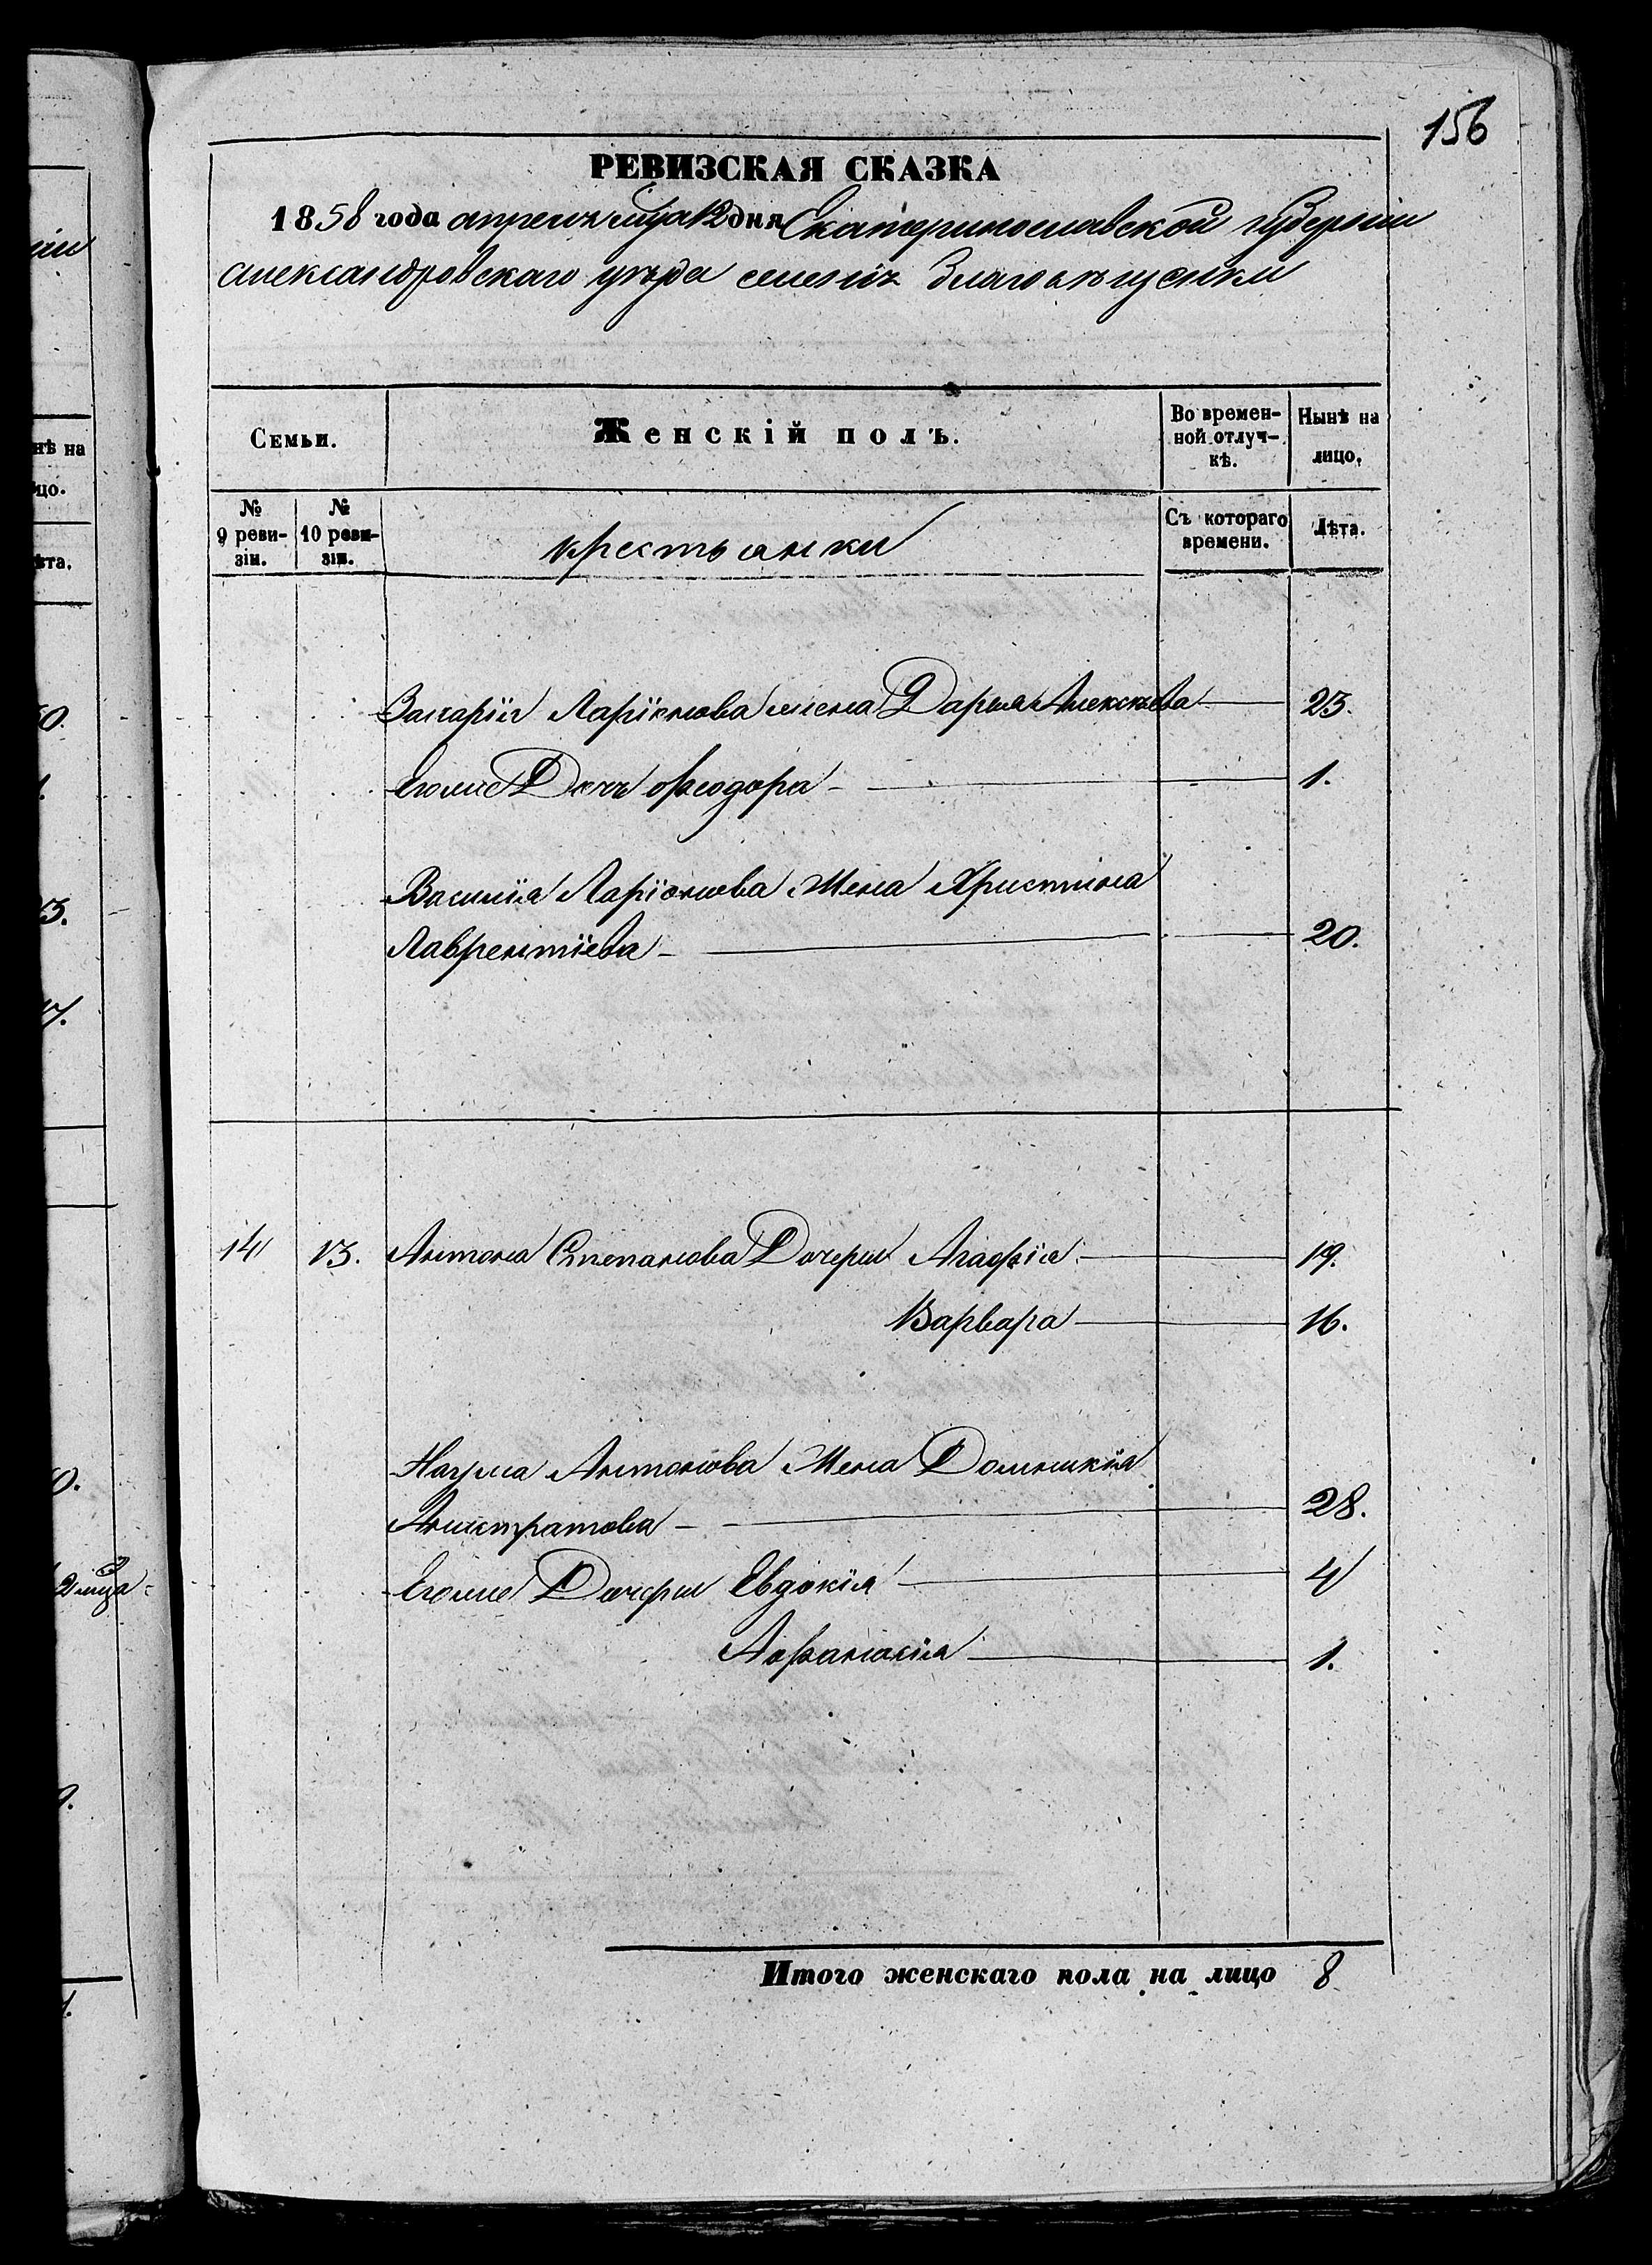 156
РЕВИЗСКАЯ СКАЗКА
1858 года апреля мца 12 дня Екатеринославской губернии
Александровскаго уѣзда селенія Благовѣщенки
Семьи.
Женскій полъ.
Во времен-
ной отлуч-
кѣ.
Нынѣ на
лицо.
№
9 реви-
зіи.
№
10 реви-
зіи.
крестьянки
Съ котораго
времени.
Лѣта.
Захарія Ларіонова жена Дарья Алексѣева 23.
Егоже Дочь Ѳеодора 1.
Василія Ларіонова Жена Христина
Лаврентіева 20.
14 13. Антона Степанова Дочери Агафія 19.
Варвара 16.
Наума Антонова Жена Домникія
Аникстратова 28.
Егоже Дочери Евдокія 4
Афанасія 1.
Итого женскаго пола на лицо 8
нѣ на
цо.
ѣта.